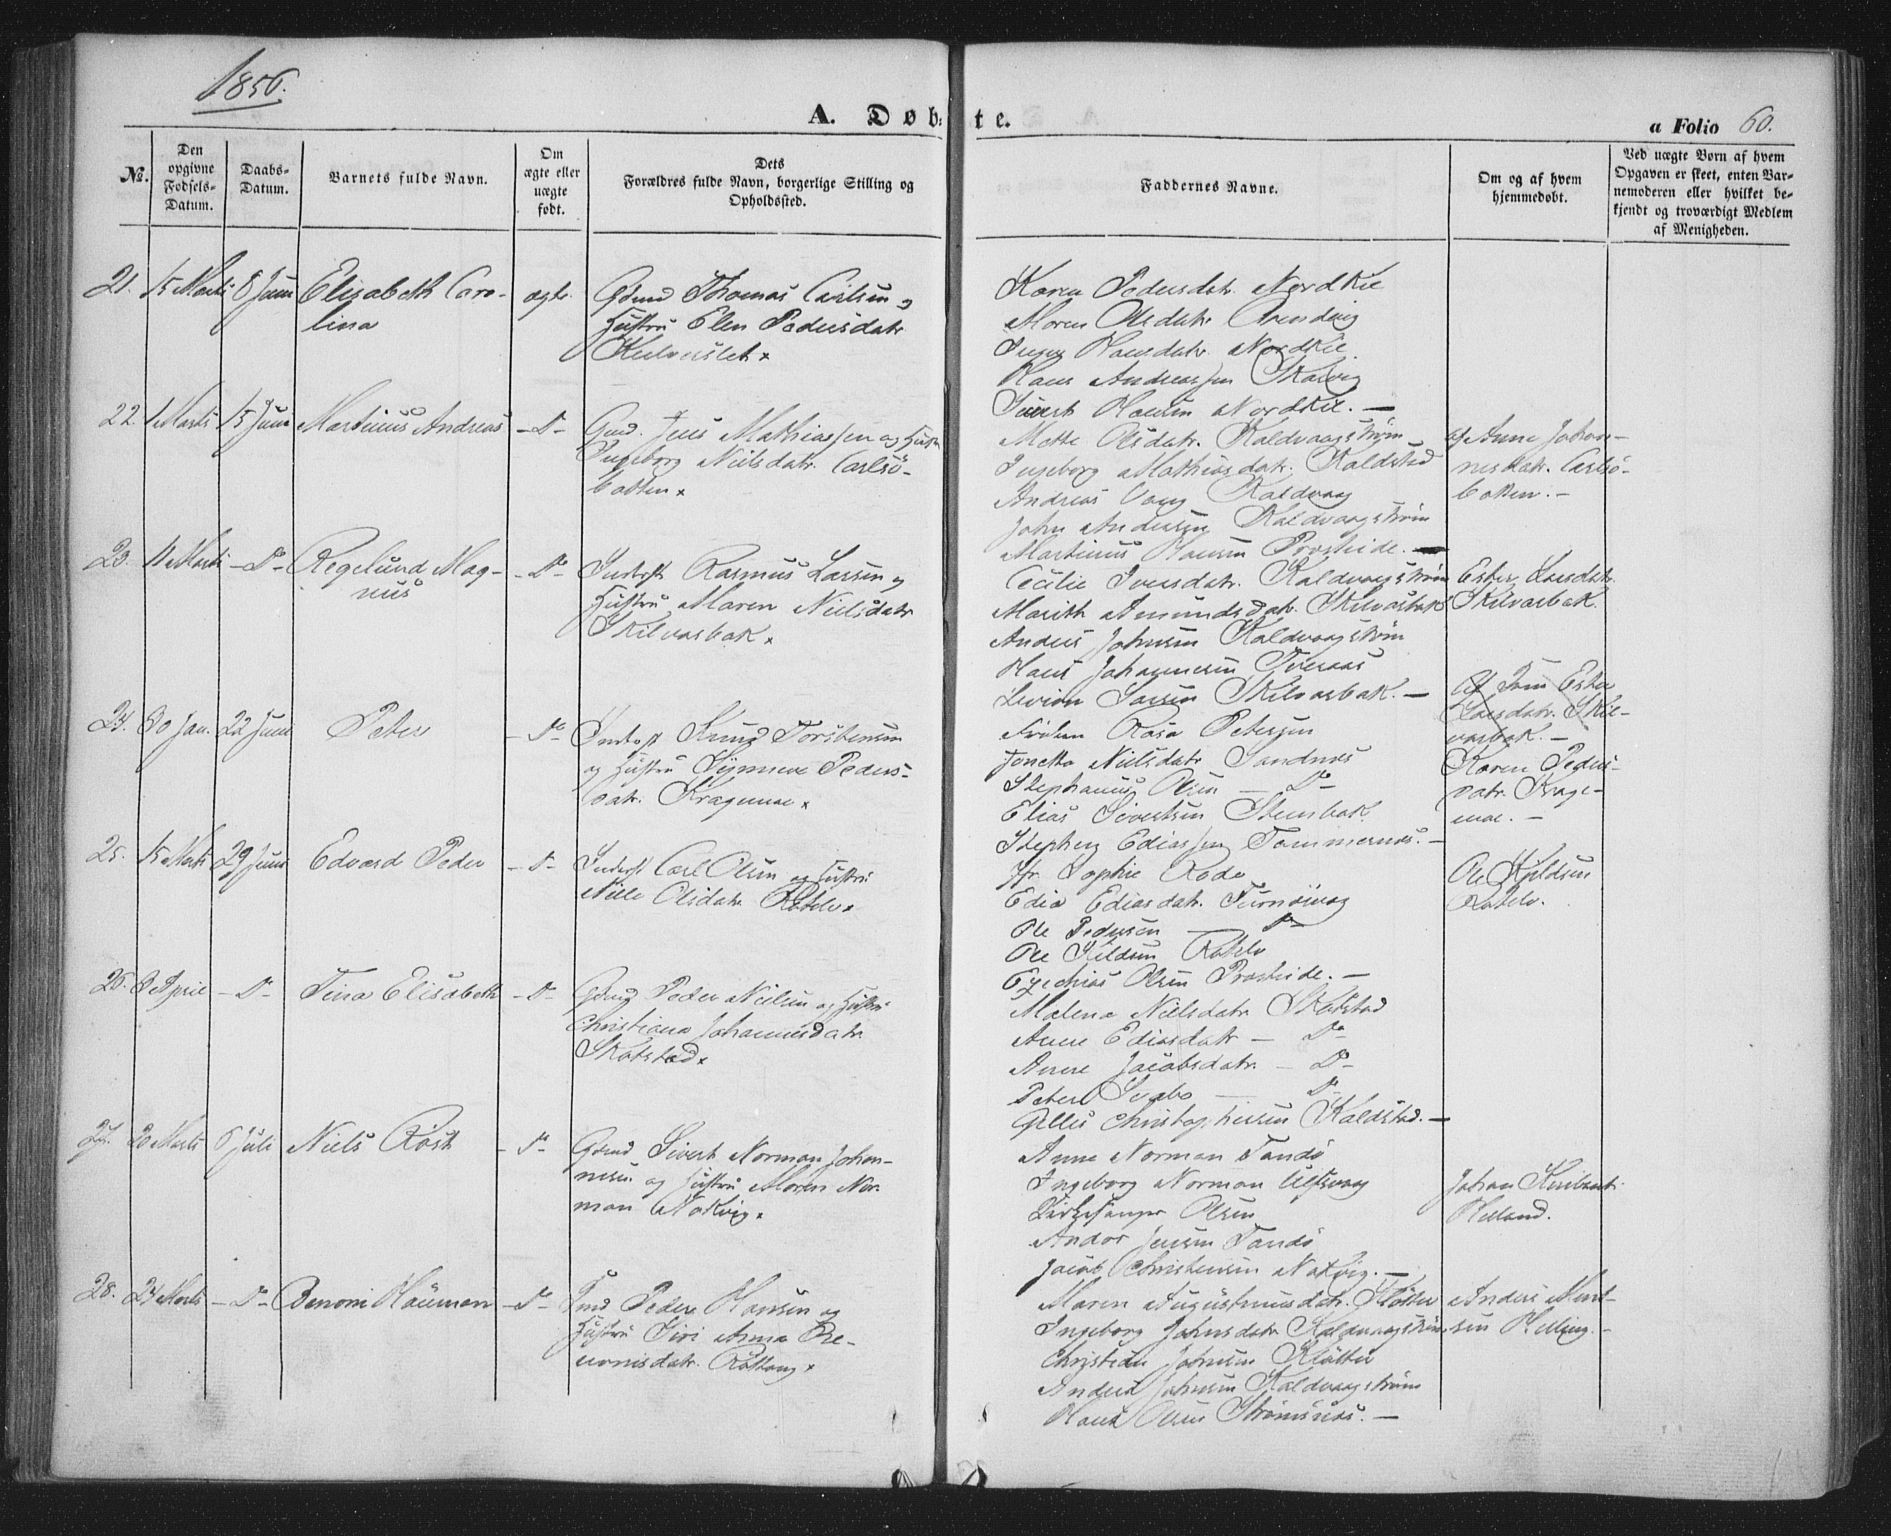 1856.
A. Døbte.
a Folio 60.
No.
Den opgivne Fødsels-Datum.
Daabs-Datum.
Barnets fulde Navn.
Om ægte eller uægte født.
Dets Forældres fulde Navn, borgerlige Stilling og Opholdssted.
Faddernes Navne.
Om og af hvem hjemmedøbt.
Ved uægte Børn af hvem Opgaven er skeet, enten Barnemoderen eller hvilket bekjendt og troværdigt Medlem af Menigheden.
21. 15 Marts 8 Juni Elisabeth Caro-
lina
ægte.
Gdmd Thomas Carlsen og
Hustru Elen Pedersdatr
Karen Pedersdatr. Nordkil
Maren Olsdatr.
Inger Hansdatr. Nordkil.
Hans Andreassen Skarvig
Sivert Hansen Nordkil. —
22. 1 Marts 15 Juni Martinus Andreas - Do -
Gmd. Jens Mathiassen og Hustru
Ingeborg Nielsdatr. Carlsö-
botten
Mette Olsdatr. Kaldvaagstrøm
Ingeborg Mathiasdatr. Kaldstad
Andreas Kaldvaag
John Andersen Kaldvaagstrøm
Martinus Hansen Prosteide. —
af Anne Johan-
nesdatr. Carlsö-
botten. -
23. 11 Marts - Do - Regelund Mag-
nus
- Do -
Inderst Rasmus Larsen og
Hustru Maren Nielsdatr
Skilvasbak
Cecilie Iversdatr. Kaldvaagstrøm
Marith Amundsdatr. Skilvasbak
Anders Johnsen Kaldvaagstrøm
Hans Johannesen Tveraas
Larsen Skilvasbak. —
Ester Larsdatr.
Skilvasbak.
24. 30 Jan. 22 Juni Peter - Do
Inderst Knud Torstensen
og Hustru Synneve Peders-
datr. Kragemoe
Frøken Rosa Petersen
Jonetta Nielsdatr Sandnes
Stephanus Olsen — Do
Elias Sivertsen Stensbak
Stephen Ediassen Tømmernes. —
Af Ester
Larsdatr. Skil-
vasbak. -
Karen Peders-
datr. Krage-
moe. -
25. 15 Marts 29 Juni Edvard Peder - Do -
Inderst Carl Olsen og Hustru
Nille Olsdatr Rotelv
Jfr. Sophie Rode
Edia Ediasdatr.
Ole Pedersen — Do
Ole Kildsen Rotelv
Ezechias Olsen Prosteide. —
Ole Kjeldsen
Rotelv.
26. 3 April - Do - Tina Elisabeth - Do -
Gdmd Peder Nielsen og Hustru
Christiana Johannesdatr.
Skotstad
Malena Nielsdatr Skotstad
Anne Ediasdatr — Do
Anne Jacobsdatr. — Do -
Peter Svabo — Do
Gilles Christophersen Kaldstad. —
27. 20 Marts 6 Juli Niels Røst - Do -
Gdmd Sivert Norman Johan-
nesen og Hustru Maren Nor-
man Nakvig
Anne Norman Tandö
Ingeborg Norman Ulfsvaag
Kirkesanger Olsen
Andor Jensen Tandö
Jacob Christensen Nakvig. —
Johan
Helland.
28. 24 Marts - Do - Benoni Hauman - Do -
Peder Hansen og
Hustru Siri Anna Be-
nonisdatr.
Maren Augustinusdatr. Kløtter
Ingeborg Johnsdatr Kaldvaagstrøm
Christian Johnsen Kløtter
Anders Johnsen Kaldvaagstrøm
Hans Olsen Strømsnes. —
Anders Mort-
sen Helling. -